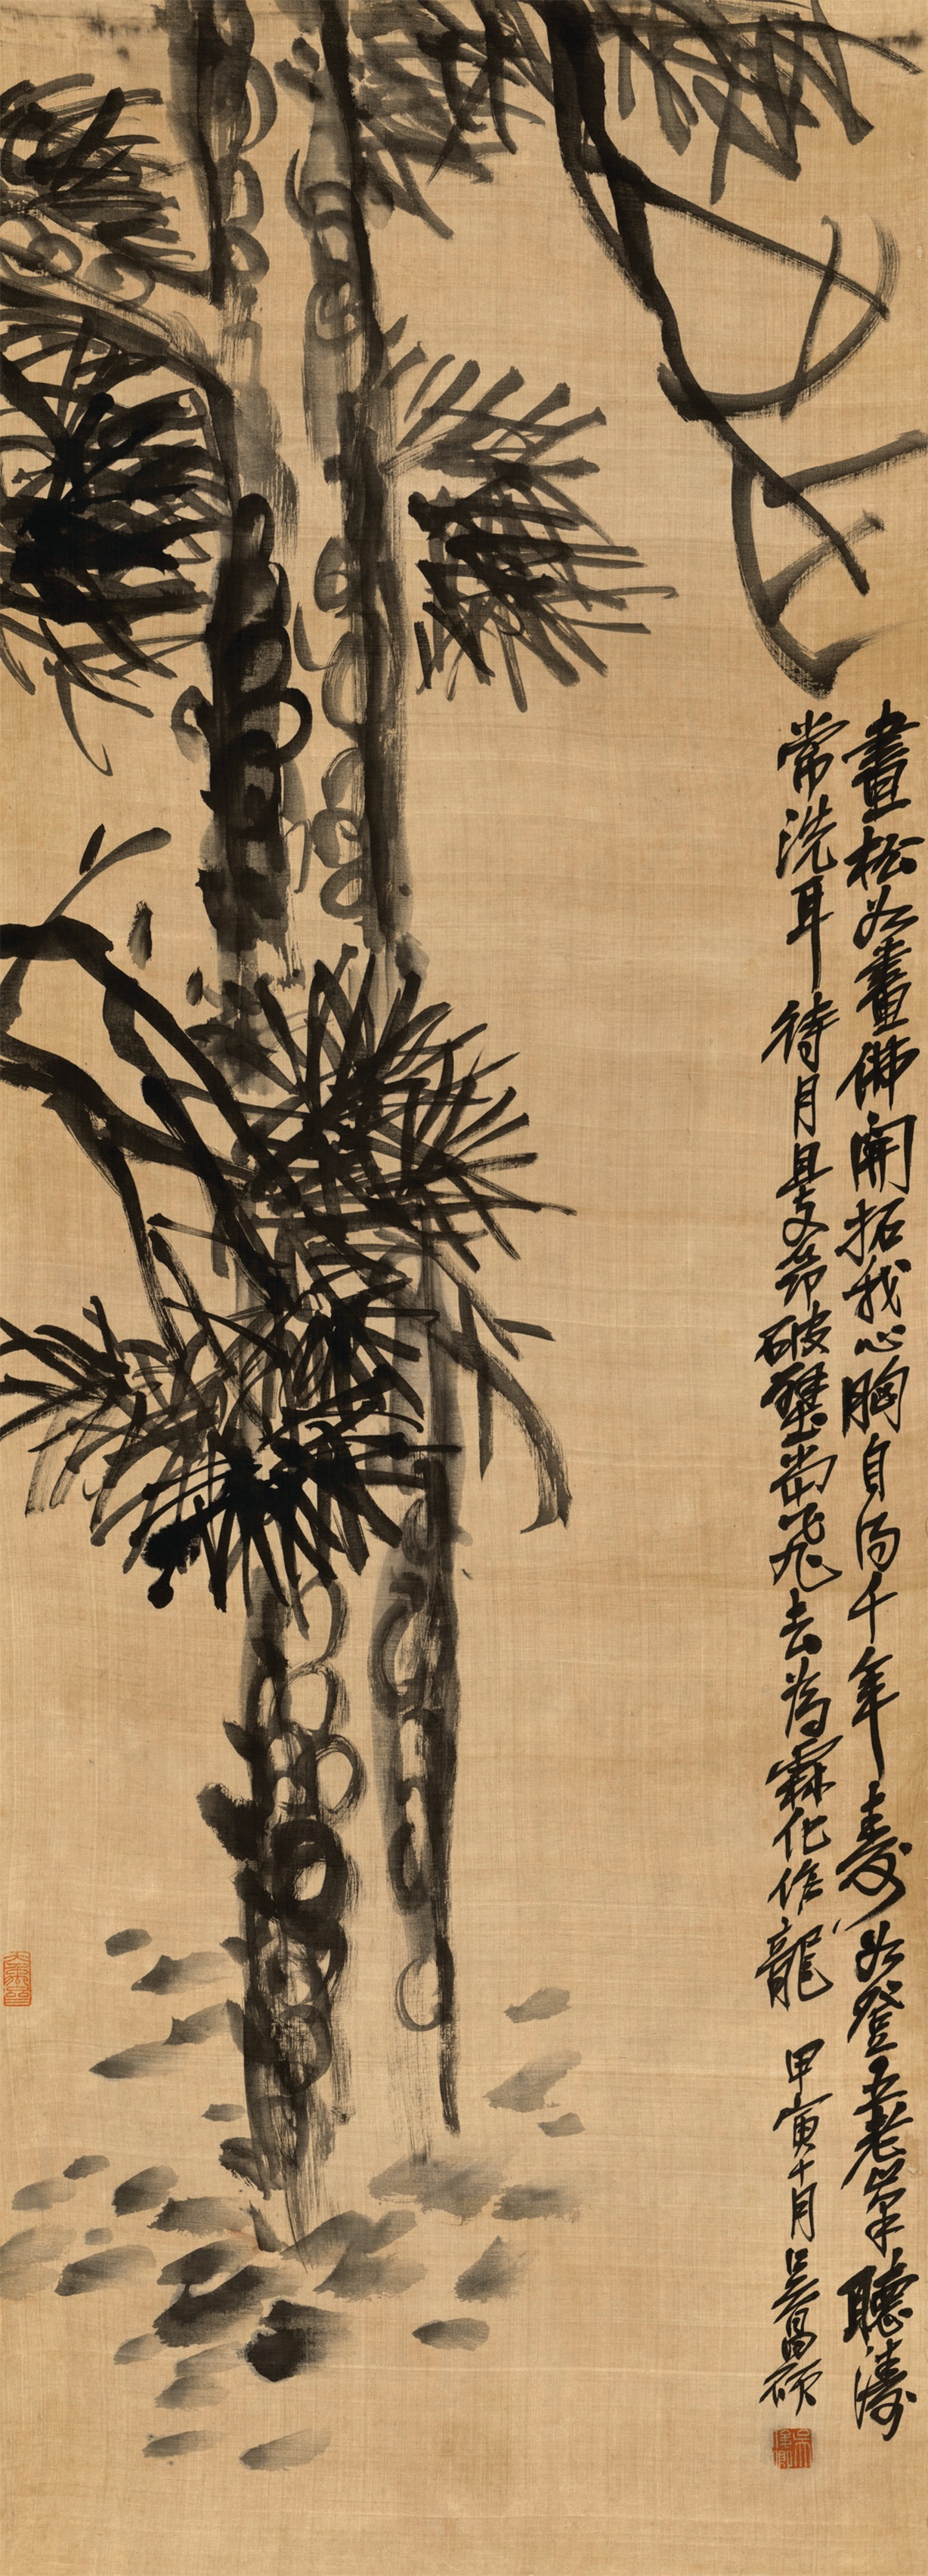 畫松如畫佛開拓我心胸自得千年壽如登五老峯聽濤
常洗耳待月且支笻破壁尚飛去為霖化作龍 甲寅十月吳昌碩
吳俊卿